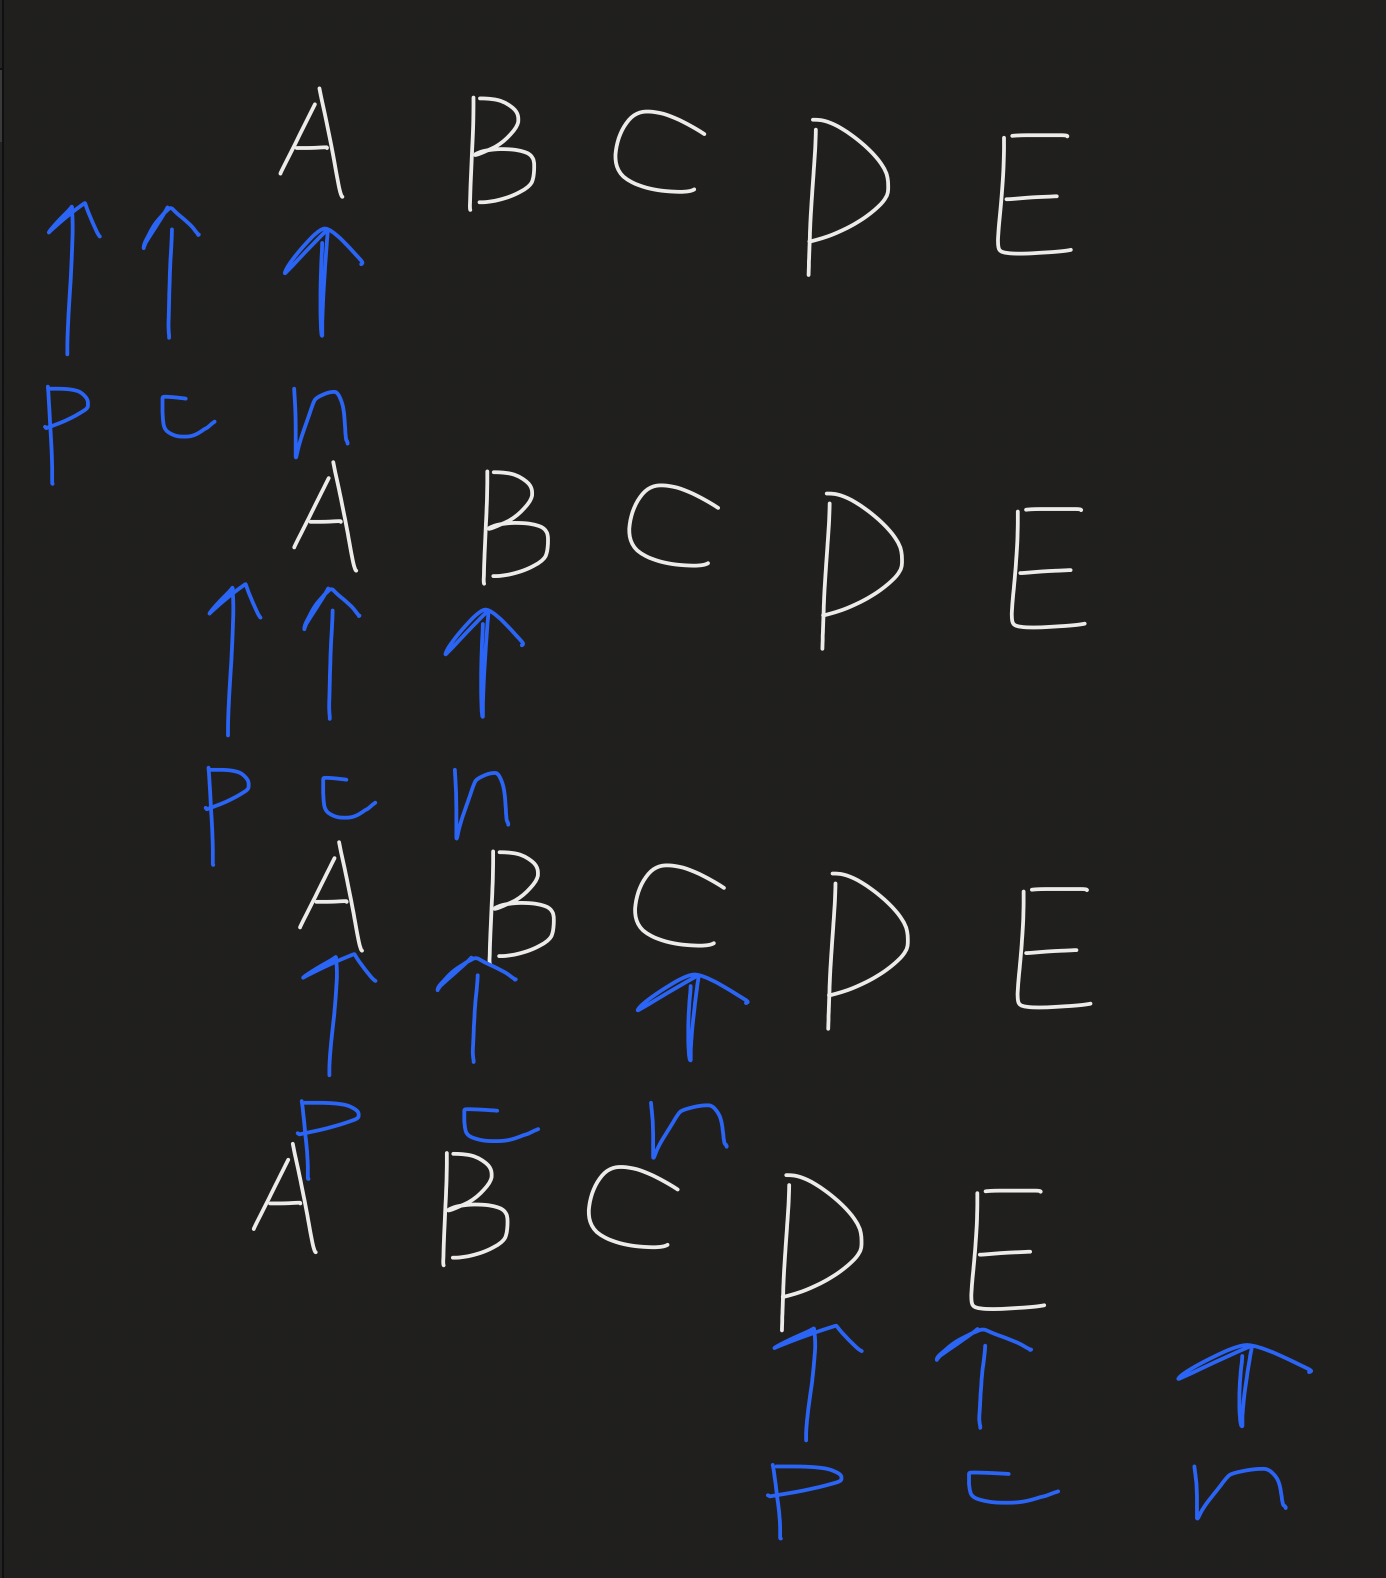 A B C D E
P C n
A B C D E
P C n
A B C D E
P C n
A B C D E
P C n